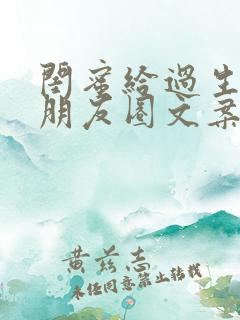 閨蜜給過生
朋友圈文案
黄兹志
未经同意禁止转载